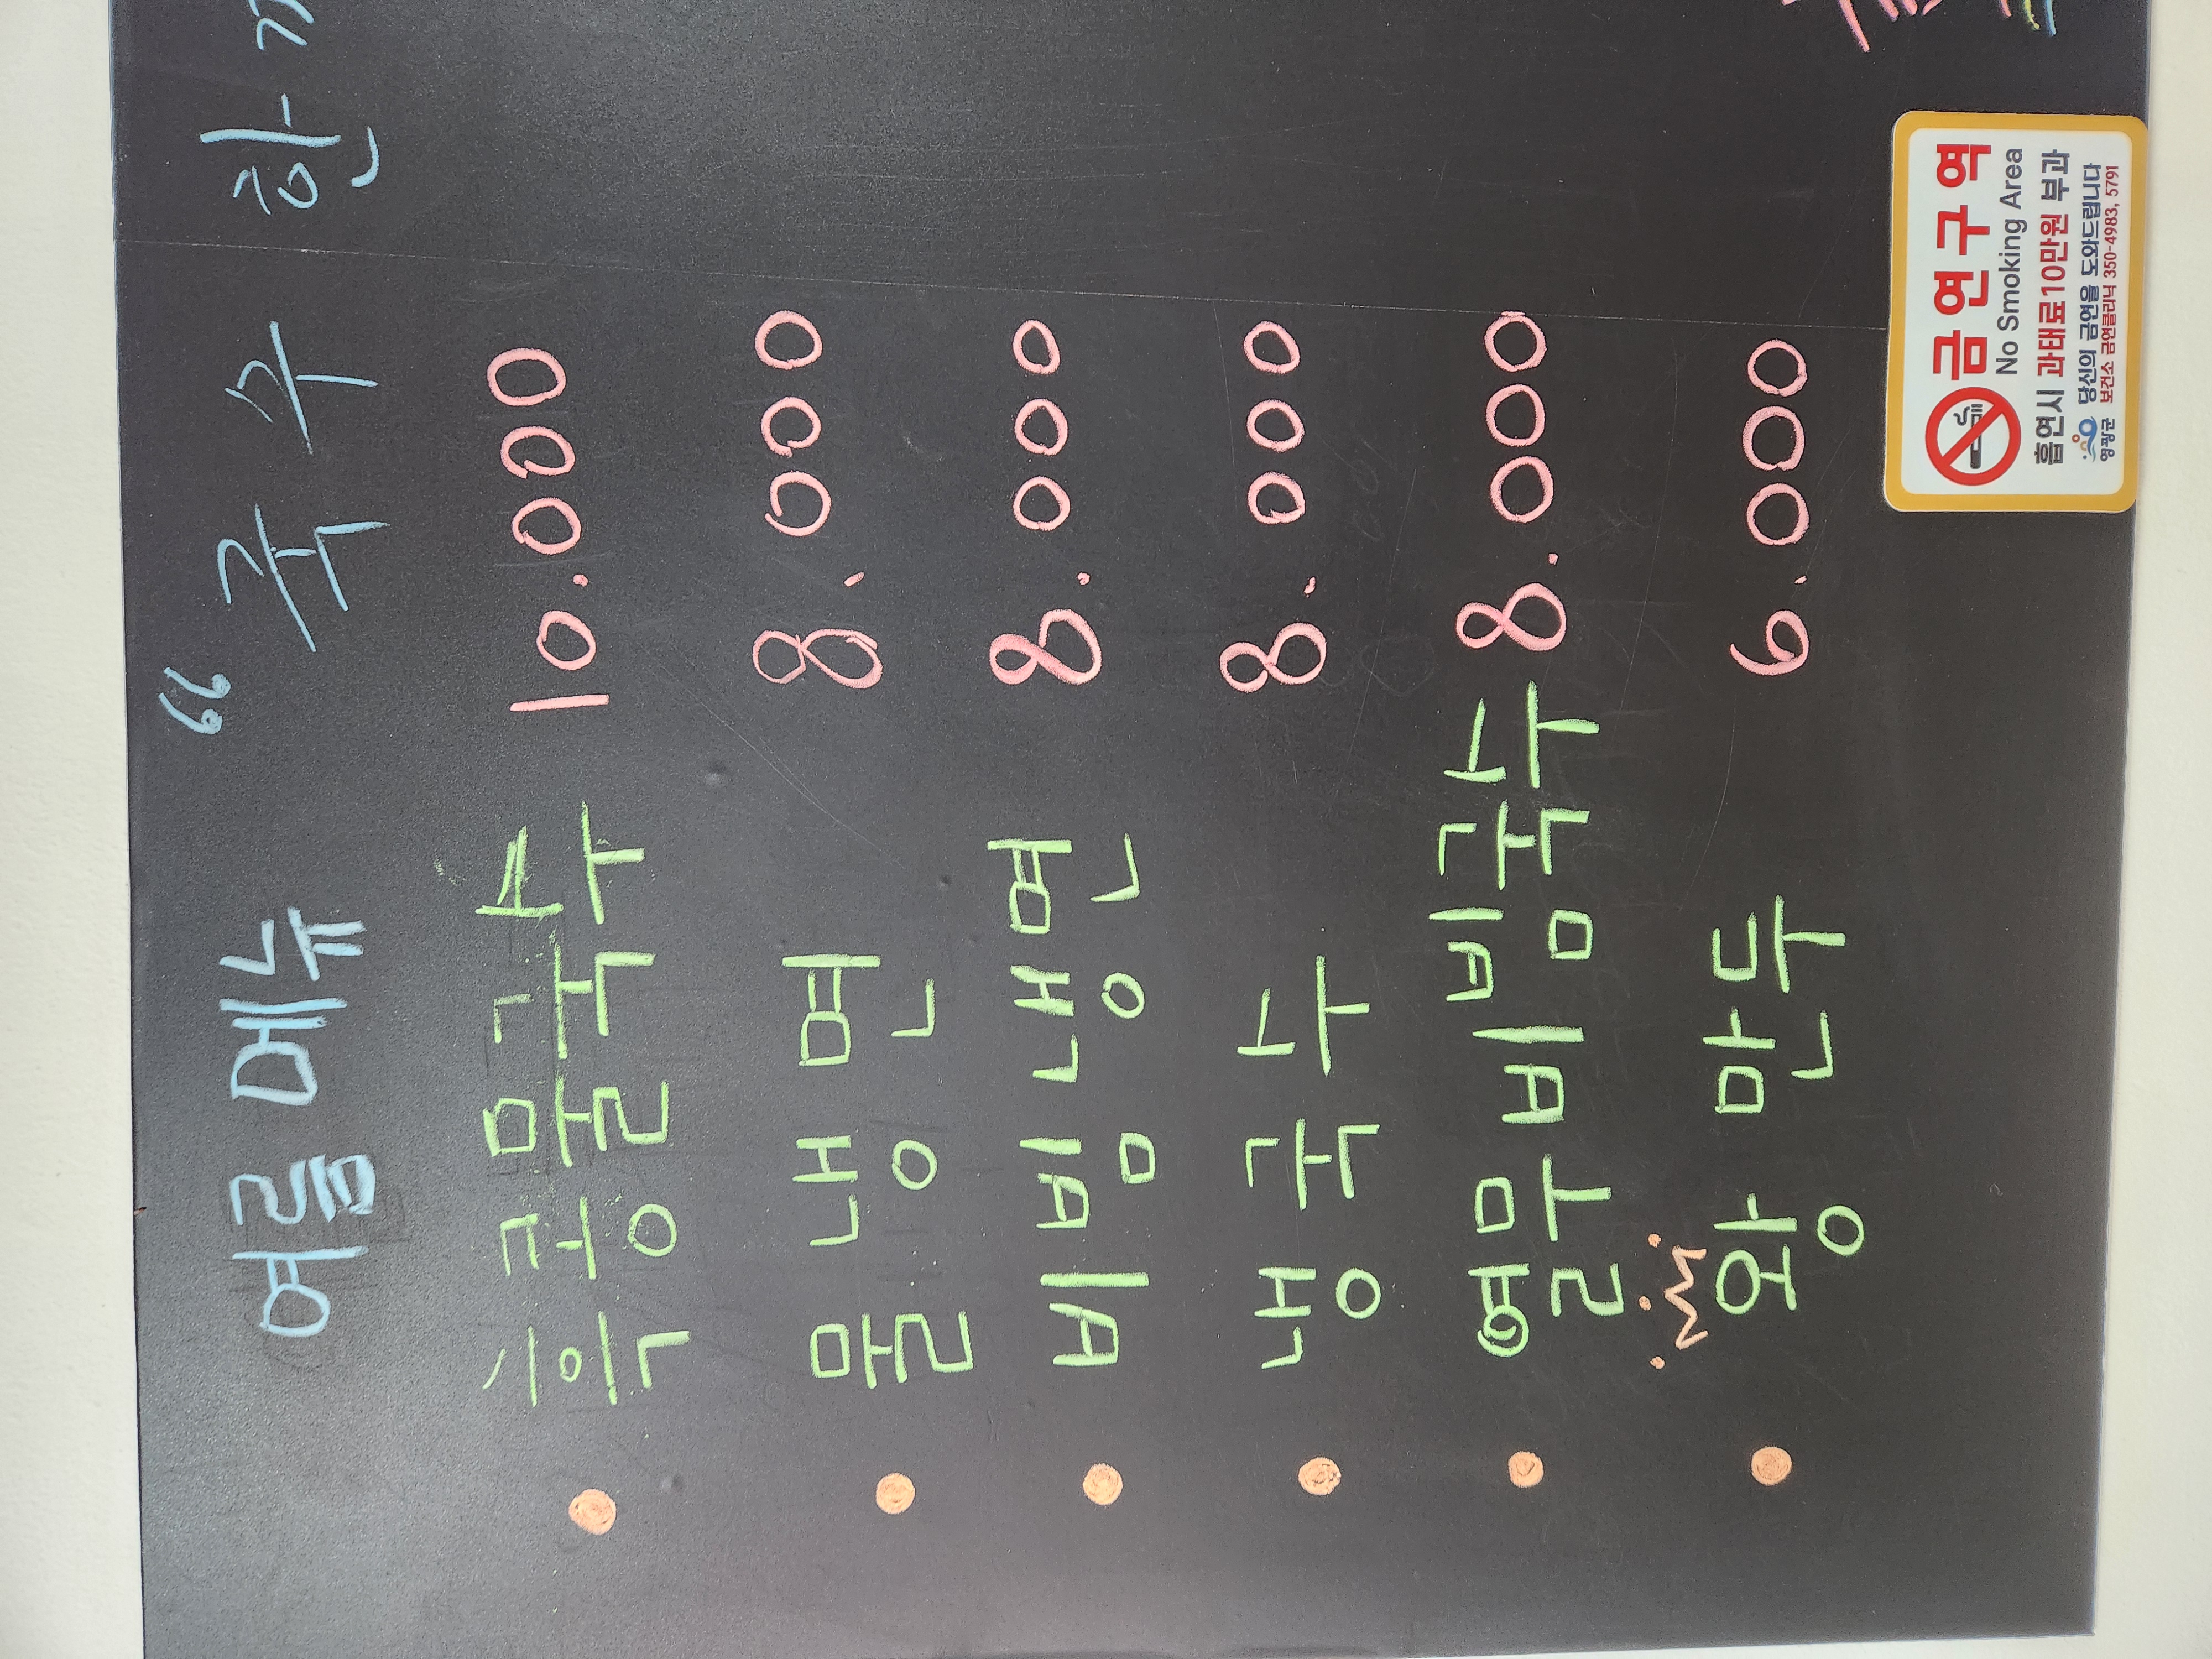 여름메뉴 “ 국수 한
흑콩물국수 10.000
물냉면 8.000
비빔냉면 8.000
냉국수 8.000
열무비빔국수 8.000
왕만두 6.000
금연구역
No Smoking Area
흡연시 과태료10만원 부과
당신의 금연을 도와드립니다
영광군 보건소 금연클리닉 350-4983, 5791